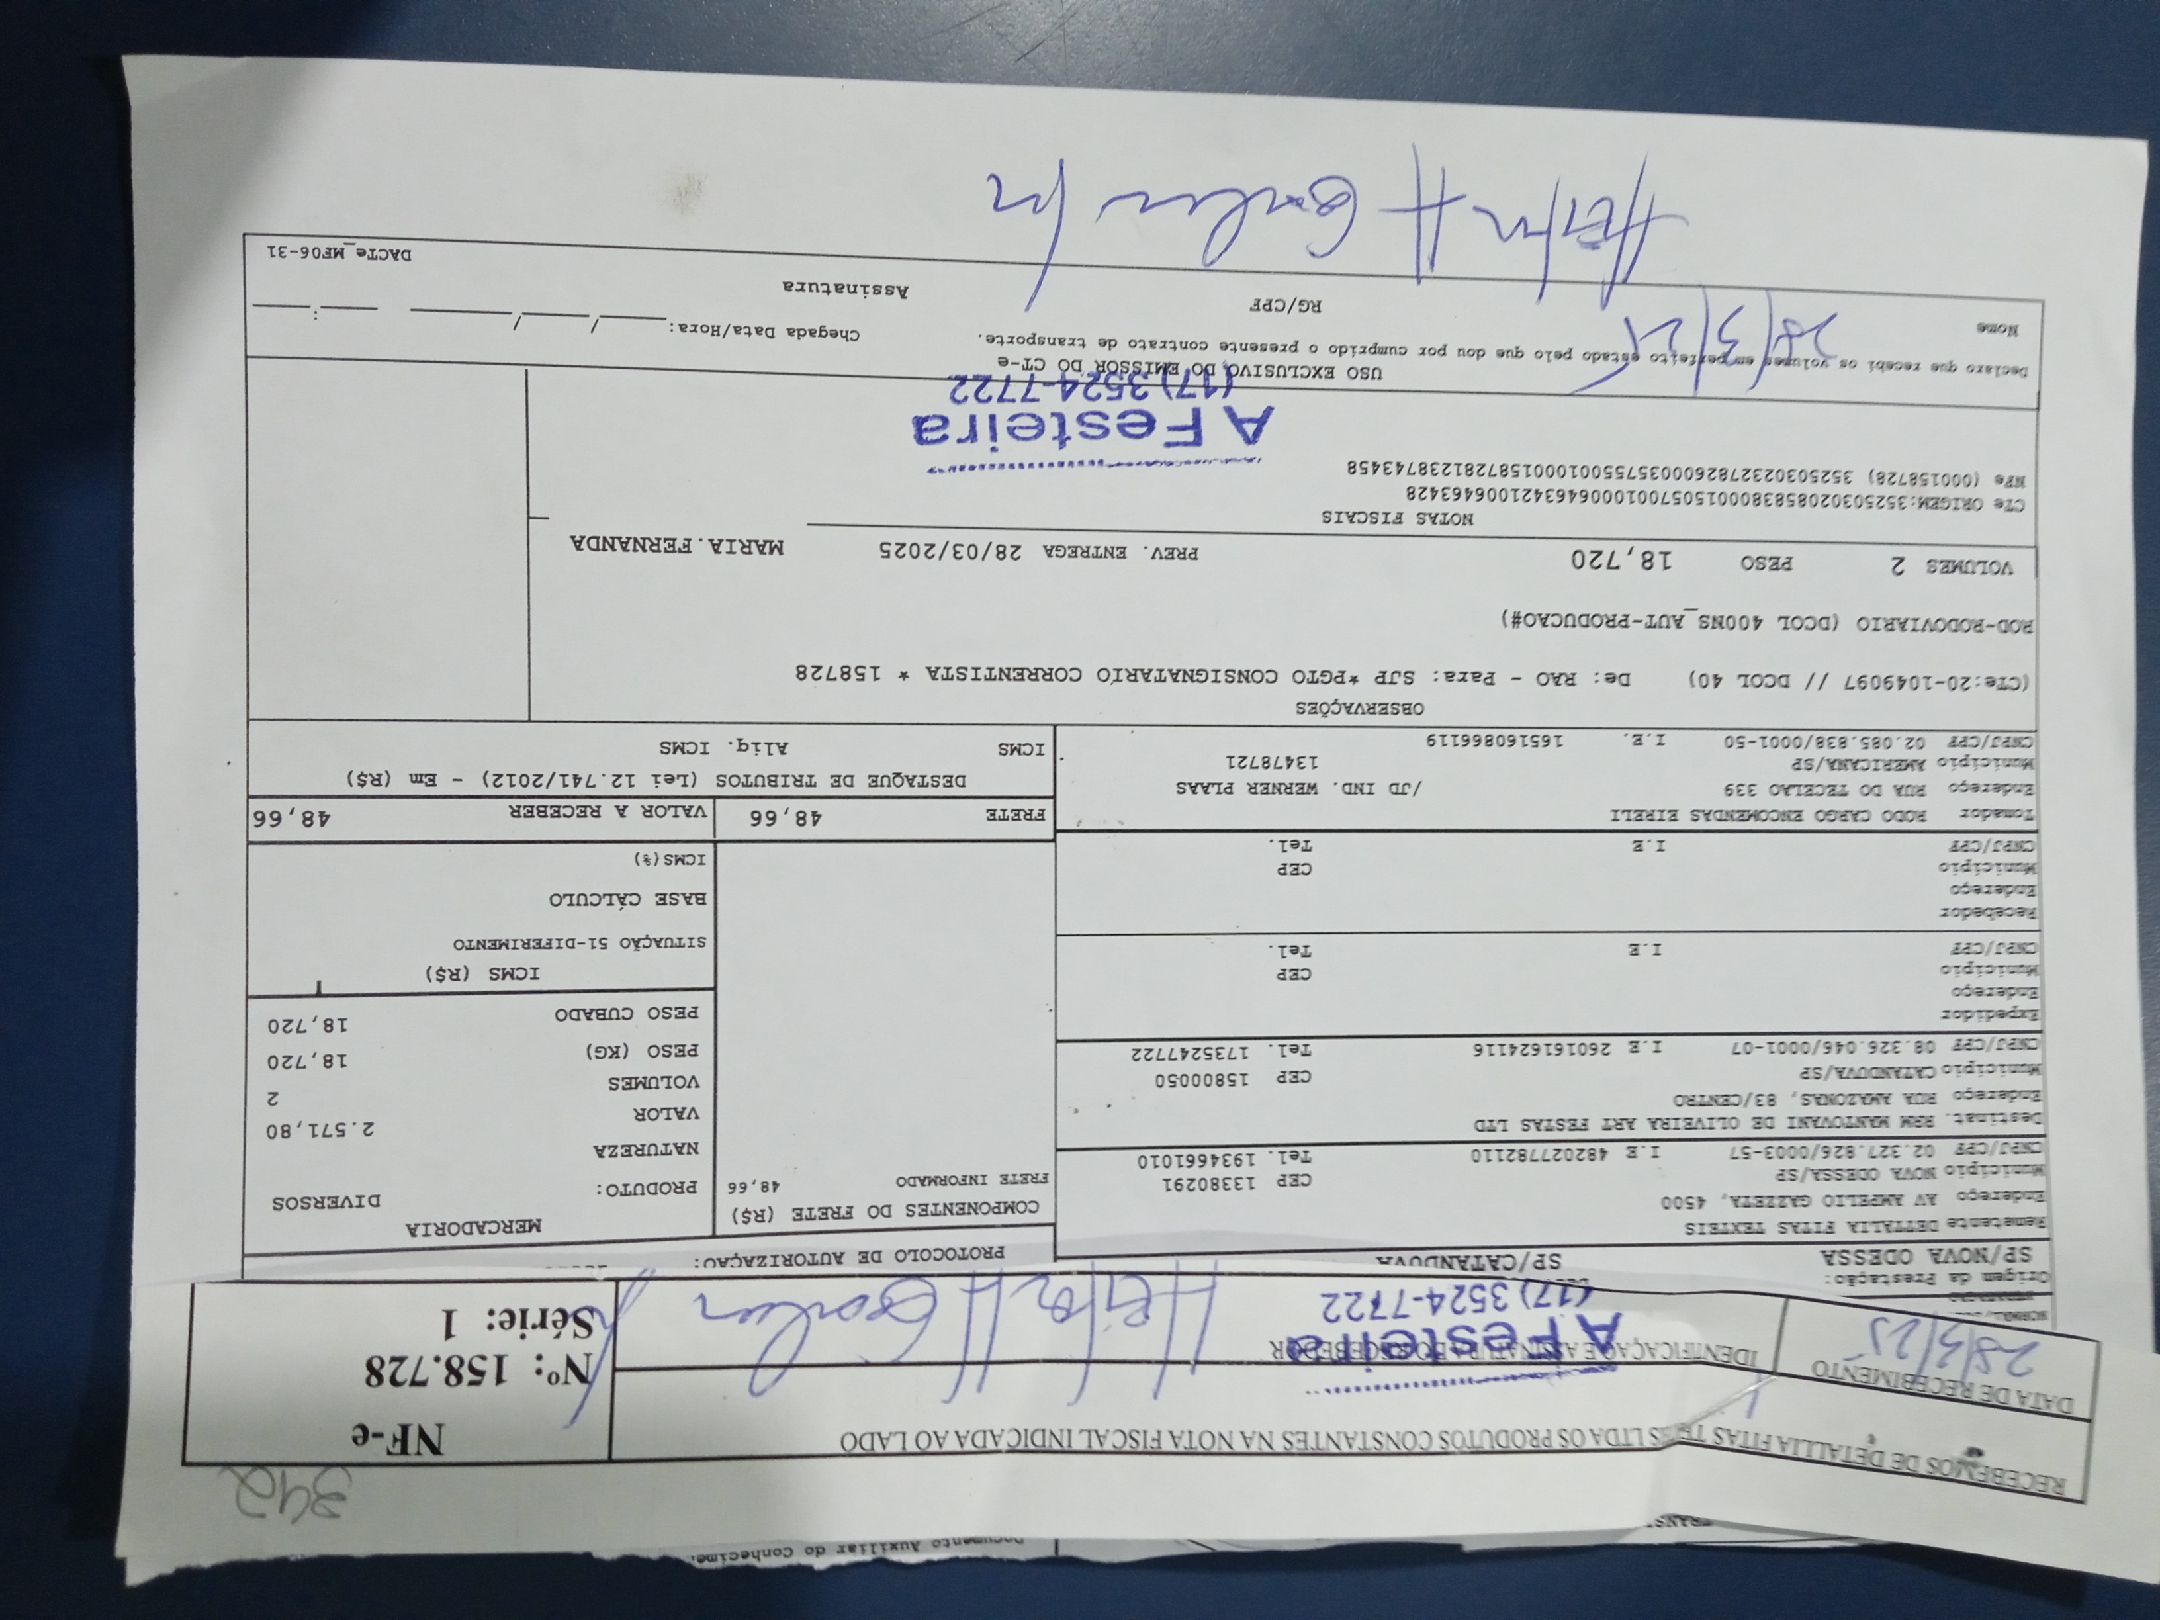 Documento Auxiliar do Conhecime
RECEBEMOS DE DETALLIA FITAS LTDA OS PRODUTOS CONSTANTES NA NOTA FISCAL INDICADA AO LADO
DATA DE RECEBIMENTO
28/3/25
IDENTIFICAÇÃO E ASSINATURA DO RECEBEDOR
A Festeira
(17) 3524-7722
Heitor H
NF-e
Nº: 158.728
Série: 1
342
Origem da Prestação:
SP/NOVA ODESSA
SP/CATANDUVA
PROTOCOLO DE AUTORIZAÇÃO:
Remetente DETTALIA FITAS TEXTEIS
Endereço AV AMPELIO GAZZETA, 4500
Município NOVA ODESSA/SP
CEP 13380291
CNPJ/CPF 02.327.826/0003-57 I.E 482027782110 Tel. 1934661010
Destinat. RRM MANTOVANI DE OLIVEIRA ART FESTAS LTD
Endereço RUA AMAZONAS, 83/CENTRO
Município CATANDUVA/SP CEP 15800050
CNPJ/CPF 08.326.046/0001-07 I.E 260161624116 Tel. 1735247722
Expedidor
Endereço
Município CEP
CNPJ/CPF I.E Tel.
Recebedor
Endereço
Município CEP
CNPJ/CPF I.E Tel.
Tomador RODO CARGO ENCOMENDAS EIRELI
Endereço RUA DO TECELAO 339 /JD IND. WERNER PLAAS
Município AMERICANA/SP 13478721
CNPJ/CPF 02.085.838/0001-50 I.E. 165160866119
COMPONENTES DO FRETE (R$)
FRETE INFORMADO 48,66
MERCADORIA
PRODUTO: DIVERSOS
NATUREZA
VALOR 2.571,80
VOLUMES 2
PESO (KG) 18,720
PESO CUBADO 18,720
ICMS (R$)
SITUAÇÃO 51-DIFERIMENTO
BASE CÁLCULO
ICMS(%)
FRETE 48,66
VALOR A RECEBER 48,66
DESTAQUE DE TRIBUTOS (Lei 12.741/2012) - Em (R$)
ICMS Aliq. ICMS
OBSERVAÇÕES
(CTe:20-1049097 // DCOL 40) De: RAO - Para: SJP *PGTO CONSIGNATARIO CORRENTISTA * 158728
ROD-RODOVIARIO (DCOL 400NS_AUT-PRODUCAO#)
VOLUMES 2 PESO 18,720 PREV. ENTREGA 28/03/2025 MARIA.FERNANDA
NOTAS FISCAIS
CTe ORIGEM:35250302085838000150570010006463421006463428
NFe (000158728) 35250302327826000357550010001587281238743458
A Festeira
(17) 3524-7722
USO EXCLUSIVO DO EMISSOR DO CT-e
Declaro que recebi os volumes em perfeito estado pelo que dou por cumprido o presente contrato de transporte.
Chegada Data/Hora: ____/____/____ ___:___
28/3/25
Nome
RG/CPF
Assinatura
DACTe_MF06-31
Heitor H